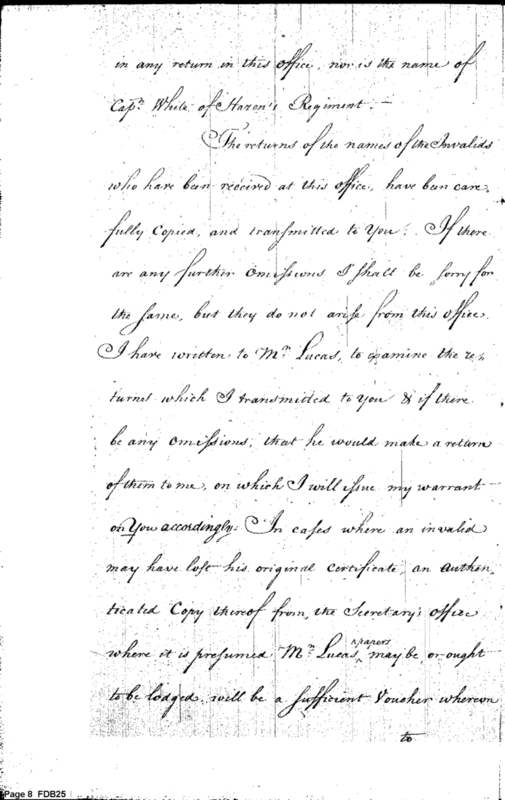 in any return in this office, nor is the name of
Capn. White of Hazen's Regiment.—
The returns of the names of the Invalids
who have been received at this office, have been care,
fully Copied, and transmitted to You. If there
are any further omissions I shall be sorry for
the same, but they do not arise from this office.
I have written to Mr. Lucas, to examine the re,,
turns which I transmitted to You & if there
be any omissions, that he would make a return
of them to me, on which I will issue my warrant
on You accordingly. In cases where an invalid
may have lost his original certificate, an authen,
ticated Copy thereof from, the Secretary's office
where it is presumed Mr. Lucas, ^papers may be, or ought
to be lodged, will be a sufficient Voucher whereon
to
Page 8 FDB25